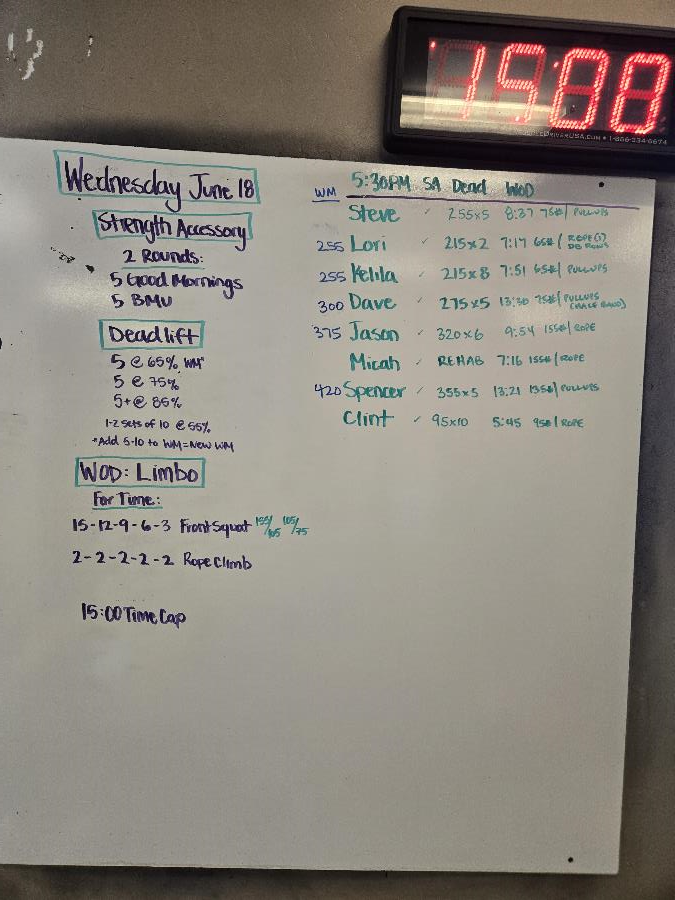 15:00
Wednesday June 18
Strength Accessory
2 Rounds:
5 Good Mornings
5 BMU
Deadlift
5 @ 65% WM*
5 @ 75%
5+ @ 85%
1-2 sets of 10 @ 55%
*Add 5-10 to WM = New WM
WOD: Limbo
For Time:
15-12-9-6-3 Front Squat 155/105 105/75
2-2-2-2-2 Rope Climb
15:00 Time Cap
WM 5:30PM SA Dead WOD
Steve ✓ 255x5 8:37 75# | PULLUPS
255 Lori ✓ 215x2 7:17 65# | ROPE(1) DB ROWS
255 Kelila ✓ 215x8 7:51 65# | PULLUPS
300 Dave ✓ 275x5 13:30 75# | PULLUPS (HALF BAND)
375 Jason ✓ 320x6 9:54 155# | ROPE
Micah ✓ REHAB 7:16 155# | ROPE
420 Spencer ✓ 355x5 13:21 135# | PULLUPS
Clint ✓ 95x10 5:45 95# | ROPE